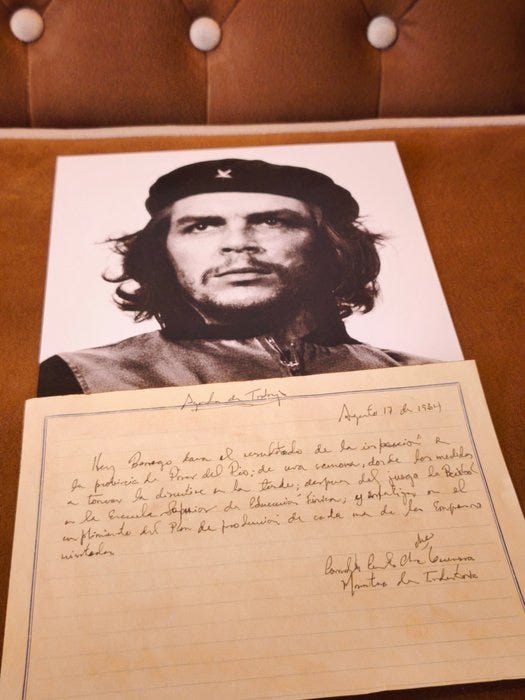 Agenda de Trabajo
Agosto 17 de 1964
Hoy Borrego dará el resultado de la inspección a
la provincia de Pinar del Río; de una semana, donde las medidas
a tomar la discutire en la tarde; despues del juego de Beisbol
en la Escuela Superior de Educación Física, y enfatizar en el
cumplimiento del Plan de producción de cada una de las Empresas
visitadas
Che
Comdte Che Guevara
Ministro de Industrias